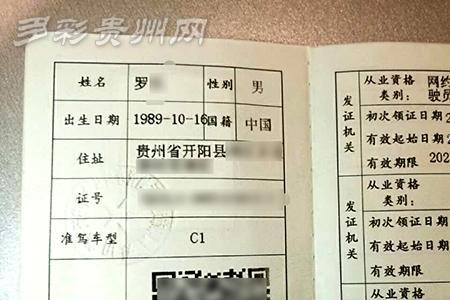 多彩贵州网
姓名 罗 性别 男
出生日期 1989-10-16 国籍 中国
住址 贵州省开阳县
证号
准驾车型 C1
发证机关
从业资格类别： 网约
驶员
初次领证日期
有效起始日期 2
有效期限 202
发证机关
从业资格
类别：
初次领证日期
有效起始日期
有效期限
从业资格